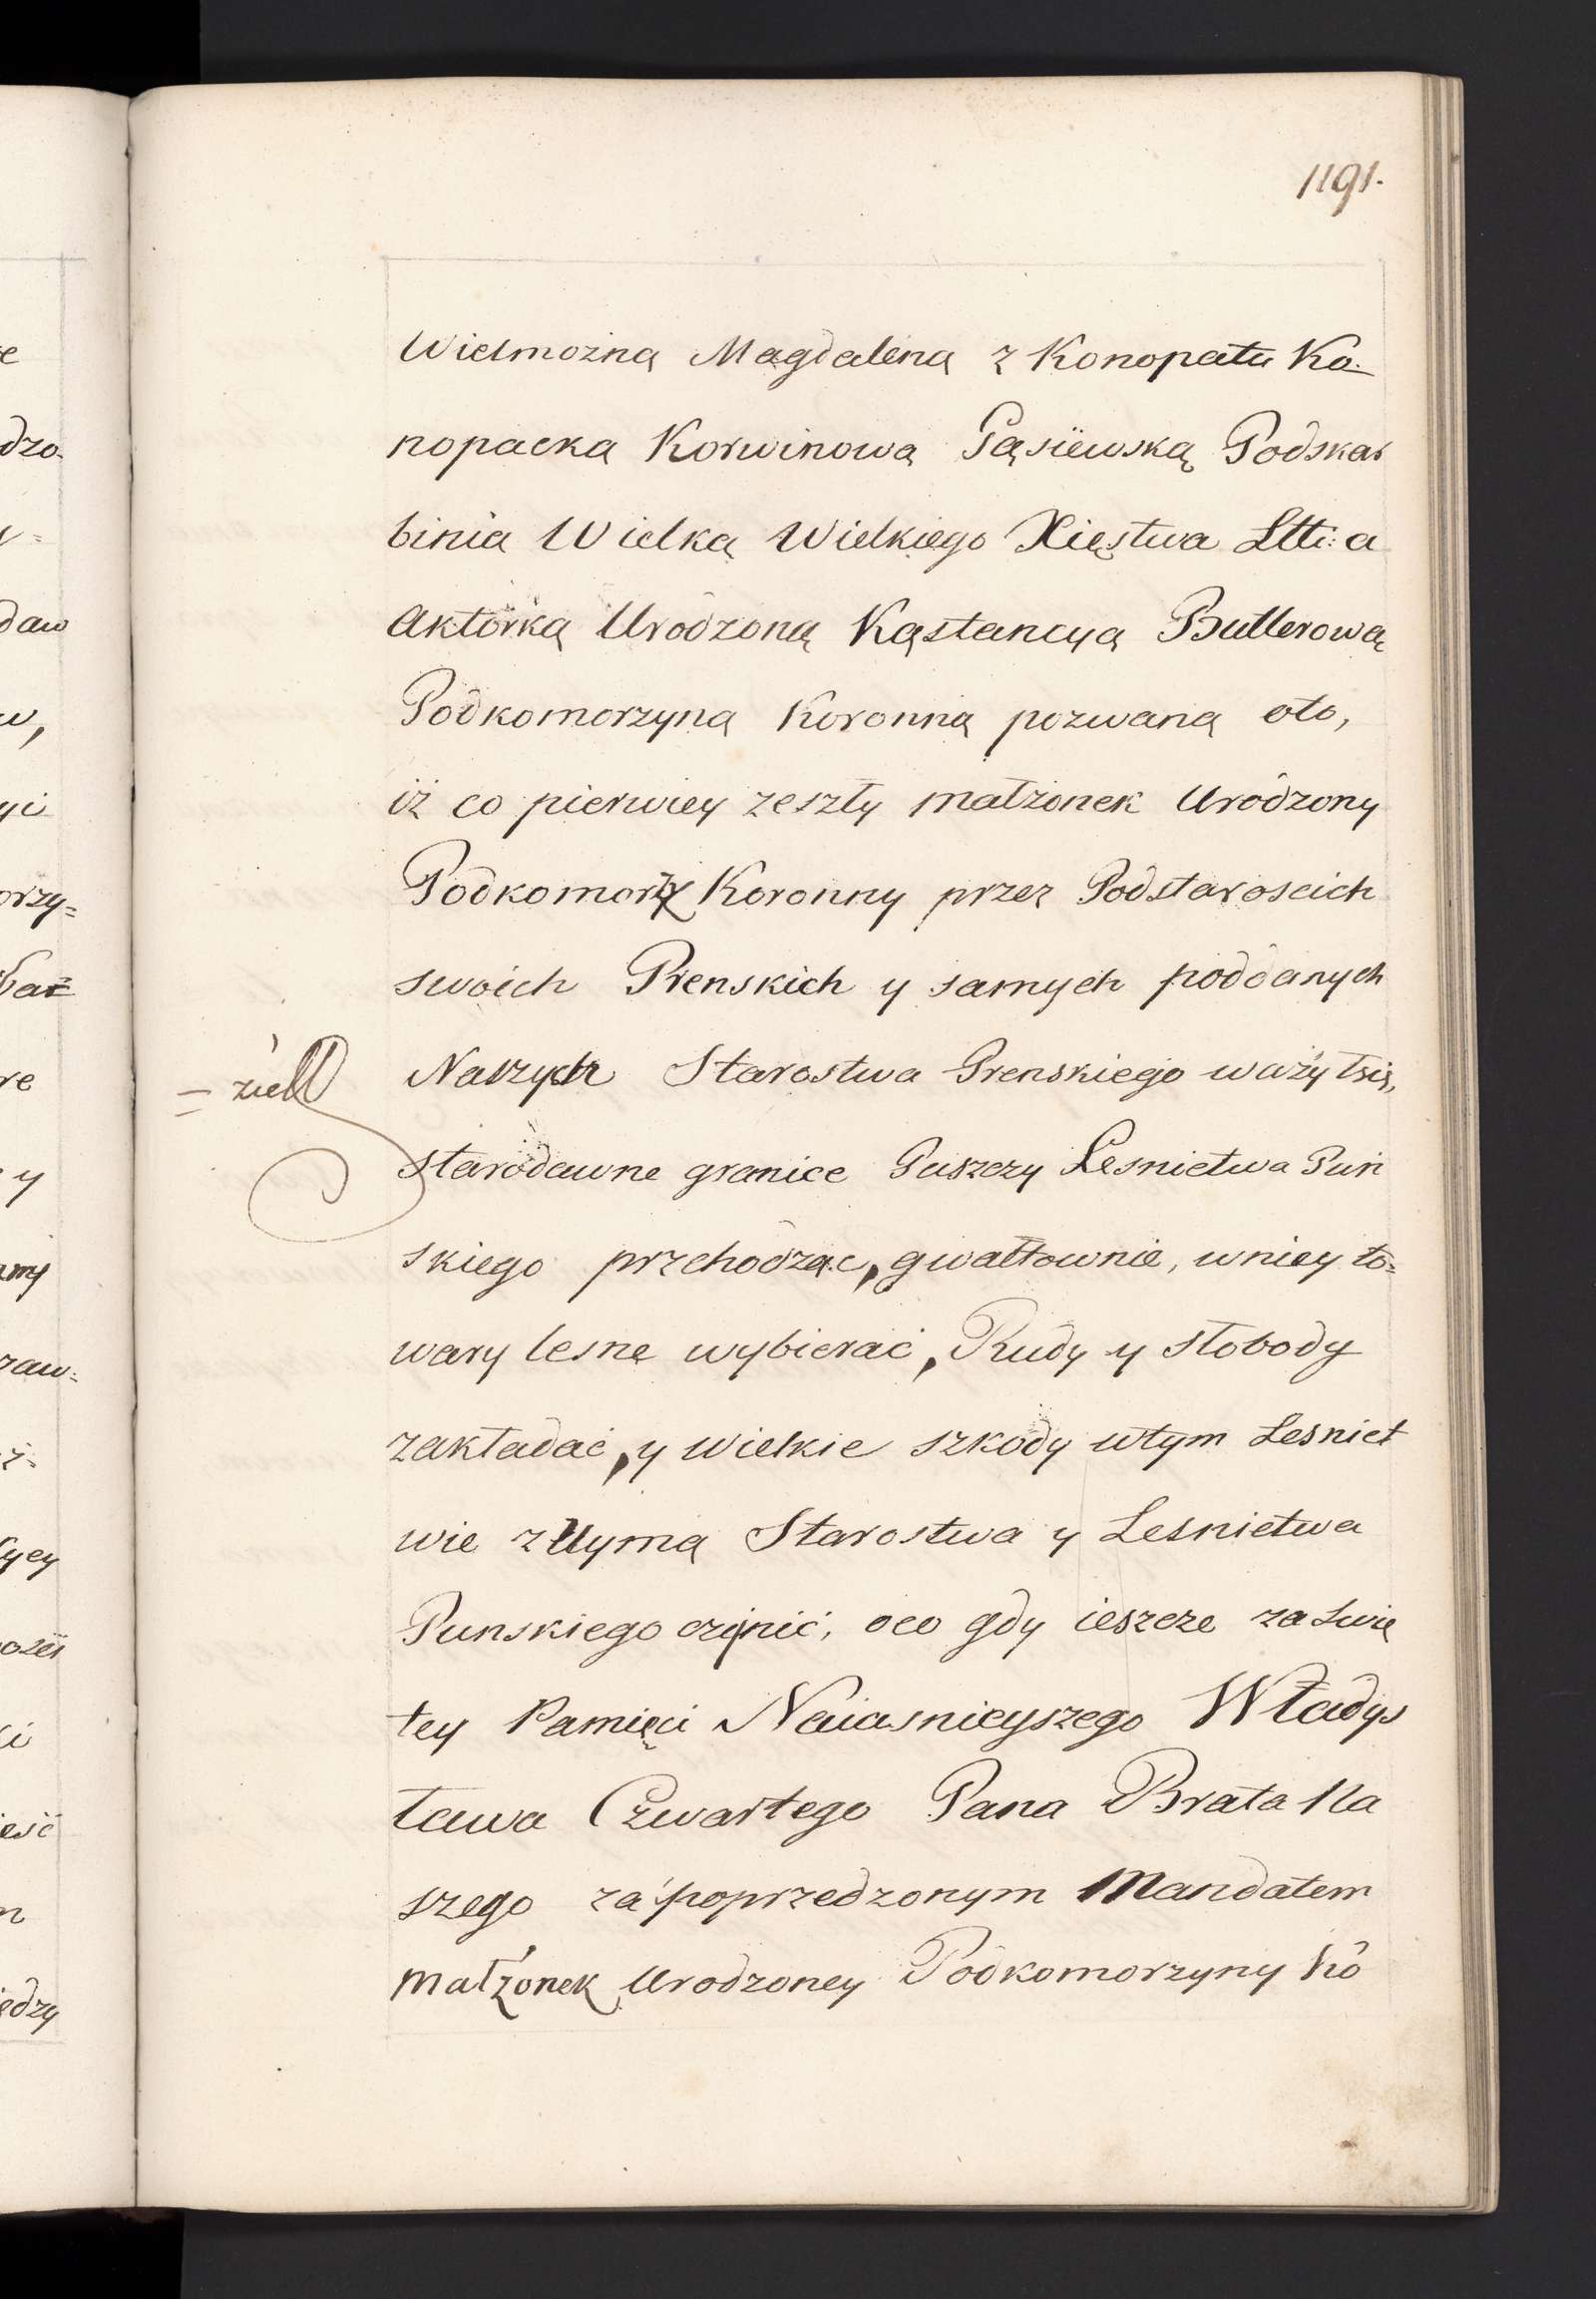 1191.
Wielmożną Magdaleną z Konopatu Ko-
nopacka Korwinową Gąsiewską Podskar
binia Wielką Wielkiego Xięstwa Litt: a
Aktorką Urodzoną Kąstancyą Butlerową
Podkomorzyną Koronną pozwaną oto,
iż co pierwiey zeszły małżonek Urodzony
Podkomorzy Koronny przez Podstaroscich
swoich Prenskich y samych poddanych
Naszych Starostwa Prenskiego ważył się,
starodawne granice Puszczy Lesnictwa Puń
skiego przechodząc, gwałtownie, wniey to=
wary lesne wybierać, Rudy y słobody
zakładać, y wielkie szkody wtym Lesnict
wie z Uymą Starostwa y Lesnictwa
Punskiego czynić, oco gdy ieszcze za Swię
tey Pamięci Naiasnieyszego Władys
ława Czwartego Pana Brata Na
szego za poprzedzonym Mandatem
małżonek Urodzoney Podkomorzyny Ko